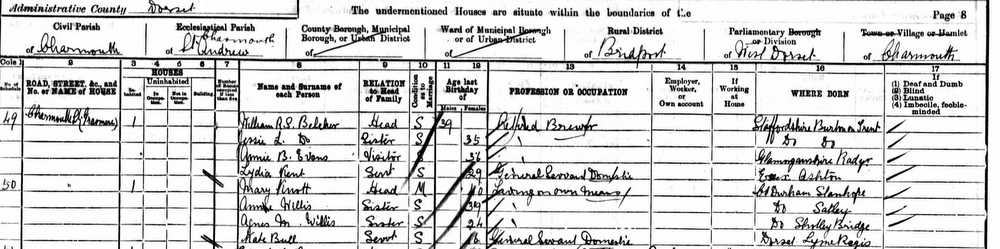 Administrative County Dorset
The undermentioned Houses are situate within the boundaries of the
Page 8
Civil Parish of Charmouth
Ecclesiastical Parish of Charmouth St Andrew
County Borough, Municipal Borough, or Urban District of
Ward of Municipal Borough or of Urban District of
Rural District of Bridport
Parliamentary Borough or Division of West Dorset
Town or Village or Hamlet of Charmouth
Cols 1 2 3 4 5 6 7 8 9 10 11 12 13 14 15 16 17
ROAD, STREET, &c., and No. or NAME of HOUSE
HOUSES
Inhabited
Uninhabited
In Occupation
Not in Occupation
Building
Name and Surname of each Person
RELATION to Head of Family
Condition as to Marriage
Age last Birthday of
Males Females
PROFESSION OR OCCUPATION
Employer, Worker, or Own account
If Working at Home
WHERE BORN
(1) Deaf and Dumb
(2) Blind
(3) Lunatic
(4) Imbecile, feeble-minded
49 1 William R.S. Belcher Head S 39 Retired Brewer Staffordshire Burton on Trent
Jessie L. Do Sister S 35 Do Do
Annie B. Evans Visitor S 36 Glamorganshire Radyr
Lydia Kent Servt S 29 General Servant Domestic Essex Ashton
50 " 1 Mary Knott Head M 40 Living on own Means Co Durham Stanhope
Annie Willis Sister S 39 Do Satley
Agnes M Willis Sister S 24 Do Shotley Bridge
Kate Bull Servt S 16 General Servant Domestic Dorset Lyme Regis